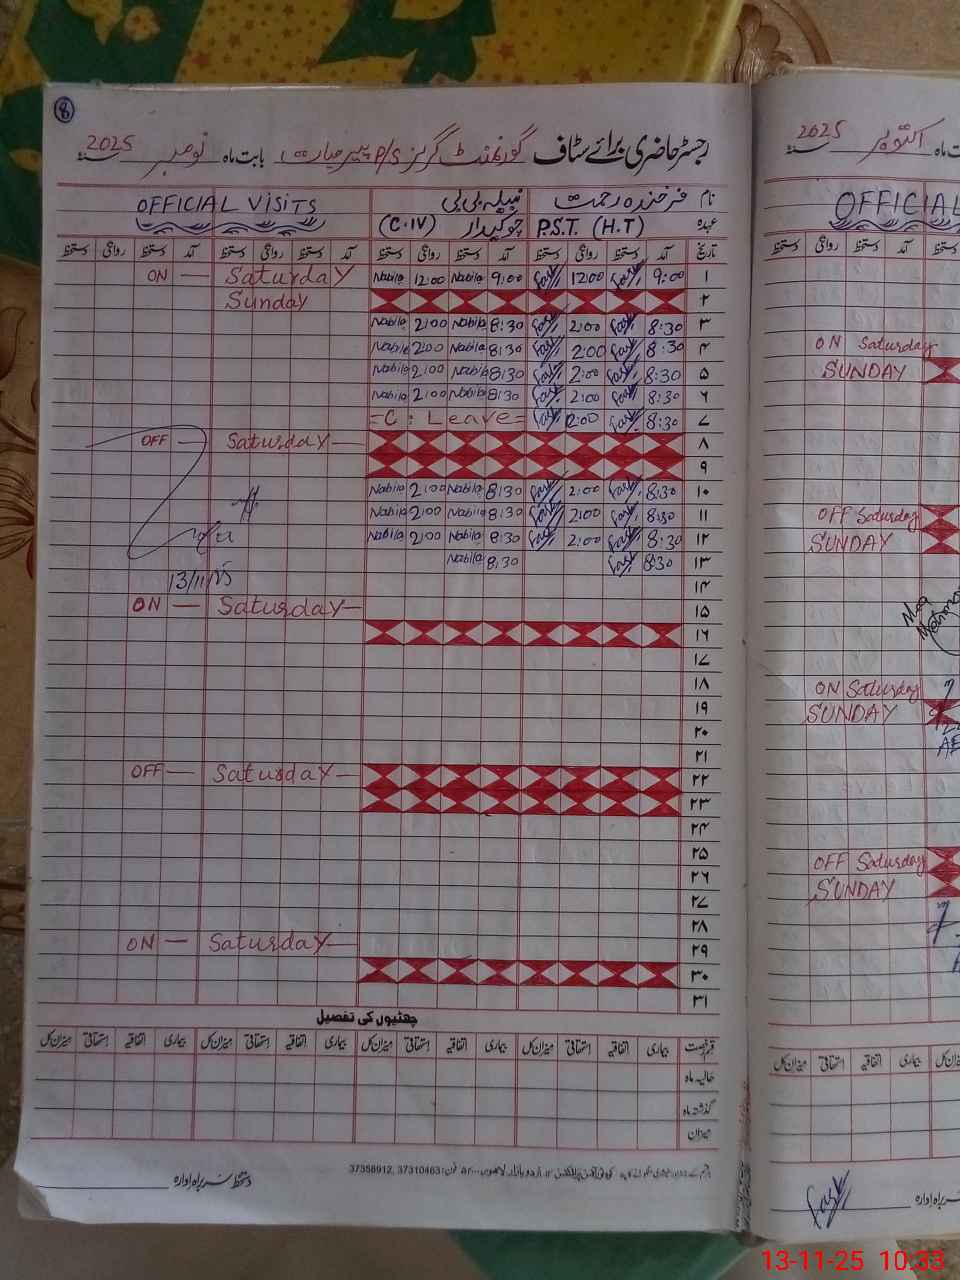 8
رجسٹر حاضری برائے سٹاف گورنمنٹ گرلز P/S پیر بابت ماہ نومبر سنہ 2025
نام فرخندہ رحمت نبیلہ بی بی OFFICIAL VISITS
عہدہ P.S.T. (H.T) چوکیدار (C.IV)
تاریخ آمد دستخط روانگی دستخط آمد دستخط روانگی دستخط آمد دستخط روانگی دستخط آمد دستخط روانگی دستخط
۱ 9:00 12:00 9:00 Nabila 12:00 Nabila Saturday — ON
۲ Sunday
۳ 8:30 2:00 8:30 Nabila 2:00 Nabila
۴ 8:30 2:00 8:30 Nabila 2:00 Nabila
۵ 8:30 2:00 8:30 Nabila 2:00 Nabila
۶ 8:30 2:00 8:30 Nabila 2:00 Nabila
۷ 8:30 2:00 =C: Leave=
۸ Saturday — OFF —
۹
۱۰ 8:30 2:00 8:30 Nabila 2:00 Nabila
۱۱ 8:30 2:00 8:30 Nabila 2:00 Nabila
۱۲ 8:30 2:00 8:30 Nabila 2:00 Nabila
۱۳ 8:30 8:30 Nabila
13/11/25
۱۴
۱۵ ON — Saturday —
۱۶
۱۷
۱۸
۱۹
۲۰
۲۱
۲۲ OFF — Saturday —
۲۳
۲۴
۲۵
۲۶
۲۷
۲۸
۲۹ ON — Saturday —
۳۰
۳۱
چھٹیوں کی تفصیل
قسم رخصت بیماری اتفاقیہ استحقاقی میزان کل بیماری اتفاقیہ استحقاقی میزان کل بیماری اتفاقیہ استحقاقی میزان کل بیماری اتفاقیہ استحقاقی میزان کل
حالیہ ماہ
گذشتہ ماہ
میزان
اردو بازار لاہور فون: 37310463, 37358912
دستخط سربراہ ادارہ
ماہ اکتوبر سنہ 2025
OFFICIAL
دستخط آمد دستخط روانگی دستخط
ON Saturday
SUNDAY
OFF Saturday
SUNDAY
ON Saturday
SUNDAY
OFF Saturday
SUNDAY
بیماری اتفاقیہ استحقاقی میزان کل
سربراہ ادارہ
13-11-25 10:33